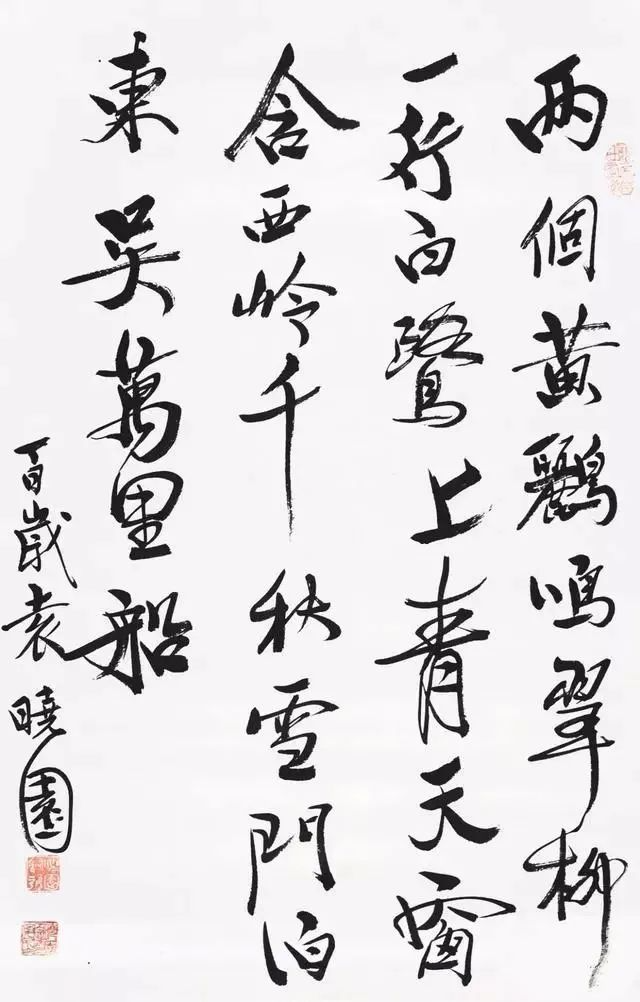 兩個黃鸝鳴翠柳
一行白鷺上青天窗
含西岭千秋雪門泊
東吴萬里船
百歲袁曉園